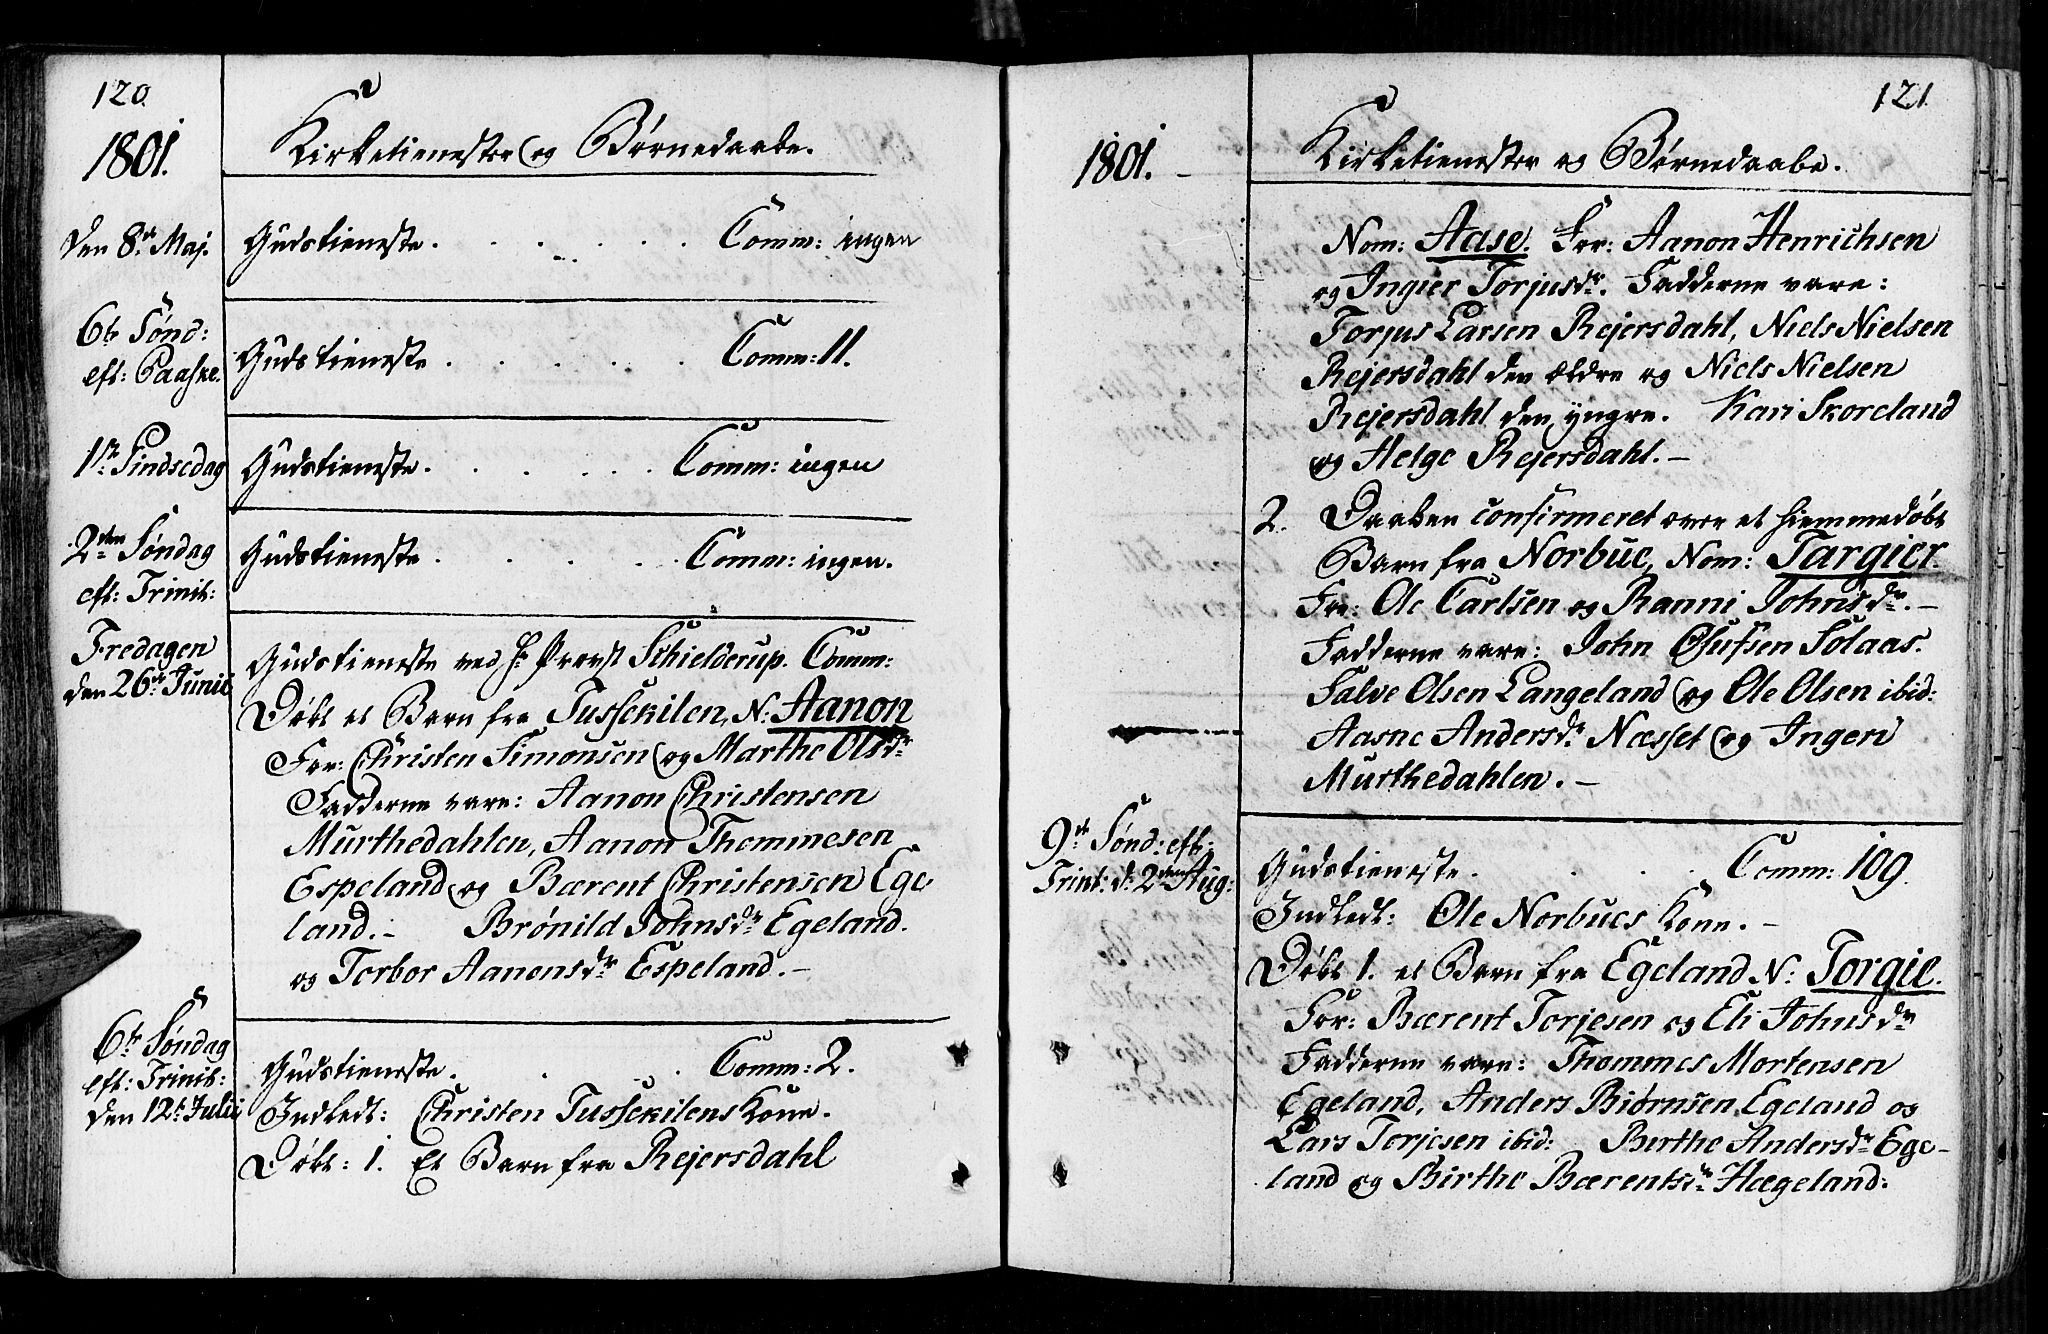 120.
1801.
Kirketienester og Børnedaabe.
den 8de Maj.
Gudstieneste. . . . . . Comm: ingen
6te Sønd:
eft: Paaske.
Gudstieneste . . . . . Comm: 11.
1ste Pindsedag
Gudstieneste. . . . . . Comm: ingen
2den Søndag
eft: Trinit:
Gudstieneste. . . . . . Comm: ingen.
Fredagen
den 26de Junii
Gudstieneste ved Hr Provst Schielderup. Comm:
Døbt et Barn fra Tussekilen, N: Aanon
For: Christen Simonsen og Marthe Olsdr
Fadderne vare: Aanon Christensen
Murthedahlen, Aanon Thommesen
Espeland og Bærent Christensen Ege-
land. – Brønild Johnsdr Egeland.
og Torbor Aanonsdr Espeland. –
6te Søndag
eft: Trinit:
den 12te Julii
Gudstieneste. . . . Comm: 2.
Indledt: Christen Tussekilens Kone.
Døbt: 1. Et Barn fra Rejersdahl
121.
1801. –
Kirketienester og Børnedaabe.
Nom: Aase. For: Aanon Henrichsen
og Ingier Torjusdr. Fadderne vare:
Torjus Larsen Rejersdahl, Niels Nielsen
Rejersdahl den ældre og Niels Nielsen
Rejersdahl den yngre. Kari Skoreland
og Helge Rejersdahl. –
2. Daaben confirmeret over et hiemmedøbt
Barn fra Norbue, Nom: Targier.
For: Ole Carlsen og Ranni Johnsdr. –
Fadderne vare: John Olufsen Solaas.
Salve Olsen Langeland og Ole Olsen ibid:
Aasne Andersdr Næsset og Ingeri
Murthedahlen. –
9de Sønd: eft:
Trint: d: 2den Aug:
Gudstieneste. . . . Comm: 109.
Indledt: Ole Norbues Kone. –
Døbt 1. et Barn fra Egeland N: Torgie.
For: Bærent Torjesen og Eli Johnsdr
Fadderne vare: Thommes Mortensen
Egeland, Anders Biørnsen Egeland og
Lars Torjesen ibid: Birthe Andersdr Ege-
land og Birthe Bærentsdr Hægeland.